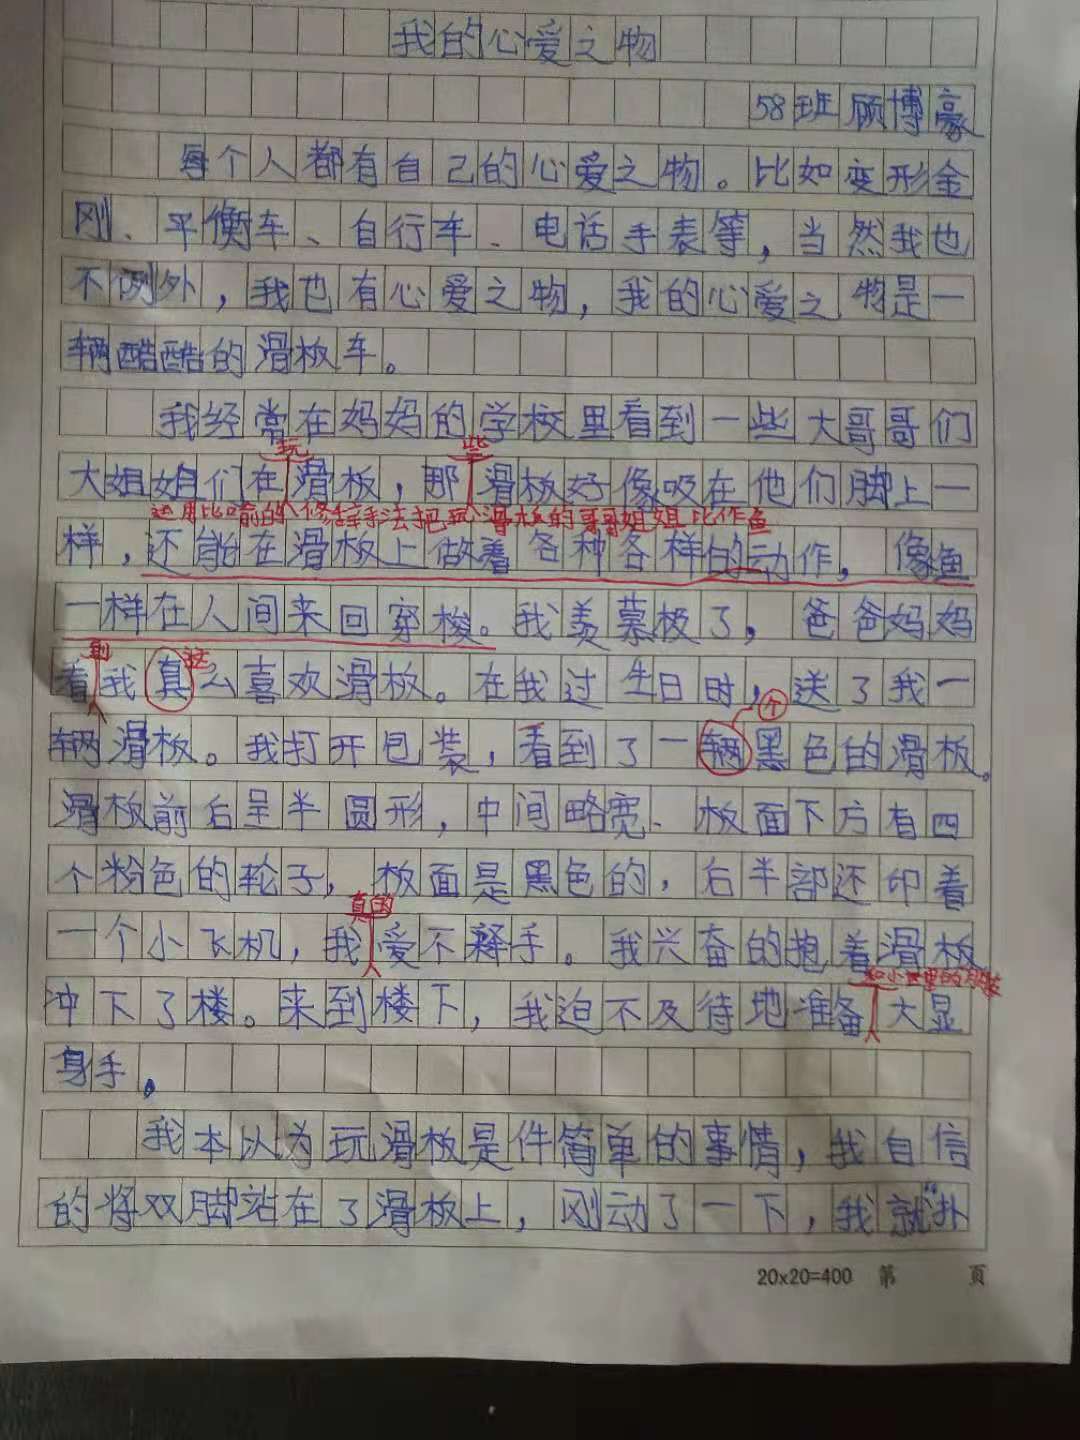 我的心爱之物
58班顾博豪
每个人都有自己的心爱之物。比如变形金
刚、平衡车、自行车、电话手表等，当然我也
不例外，我也有心爱之物，我的心爱之物是一
辆酷酷的滑板车。
我经常在妈妈的学校里看到一些大哥哥们
玩 些
大姐姐们在滑板，那滑板好像吸在他们脚上一
运用比喻的修辞手法把玩滑板的哥哥姐姐比作鱼
样，还能在滑板上做着各种各样的动作，像鱼
一样在人间来回穿梭。我羡慕极了，爸爸妈妈
到 这
看我真么喜欢滑板。在我过生日时，送了我一
个
辆滑板。我打开包装，看到了一辆黑色的滑板。
滑板前后呈半圆形，中间略宽、板面下方有四
个粉色的轮子，板面是黑色的，后半部还印着
真的
一个小飞机，我爱不释手。我兴奋的抱着滑板
和小区里的
冲下了楼。来到楼下，我迫不及待地准备大显
身手。
我本以为玩滑板是件简单的事情，我自信
的将双脚站在了滑板上，刚动了一下，我就“扑
20x20=400 第 页